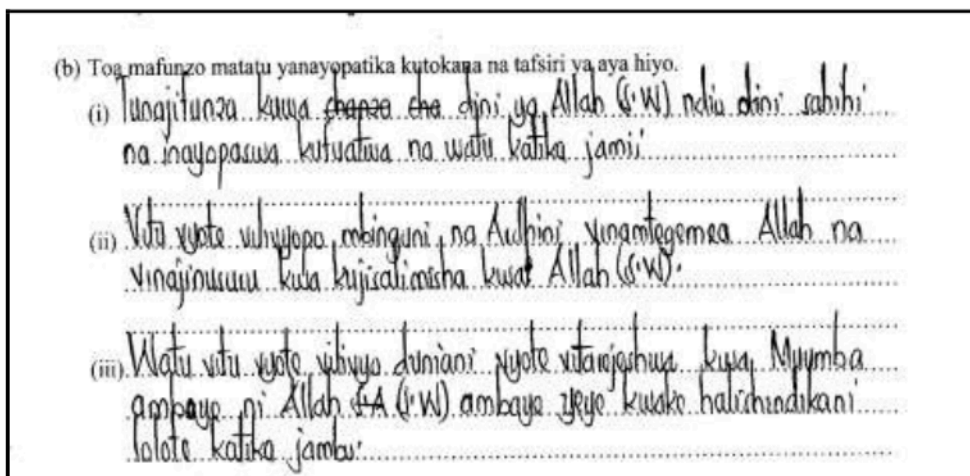 (b) Toa mafunzo matatu yanayopatika kutokana na tafsiri ya aya hiyo.
(i) Tunajifunza kuwa chanzo cha dini ya Allah (S.W) ndiu dini sahihi
na inayopaswa kufuatwa na watu katika jamii
(ii) Vitu vyote vilivyopo mbinguni na Ardhini vinamtegemea Allah na
vinajinusuru kwa kujisalimisha kwa Allah (S.W).
(iii) Watu vitu vyote vilivyo duniani vyote vitarejeshwa kwa Muumba
ambaye ni Allah S.A (S.W) ambaye yeye kwake halishindikani
lolote katika jambo.